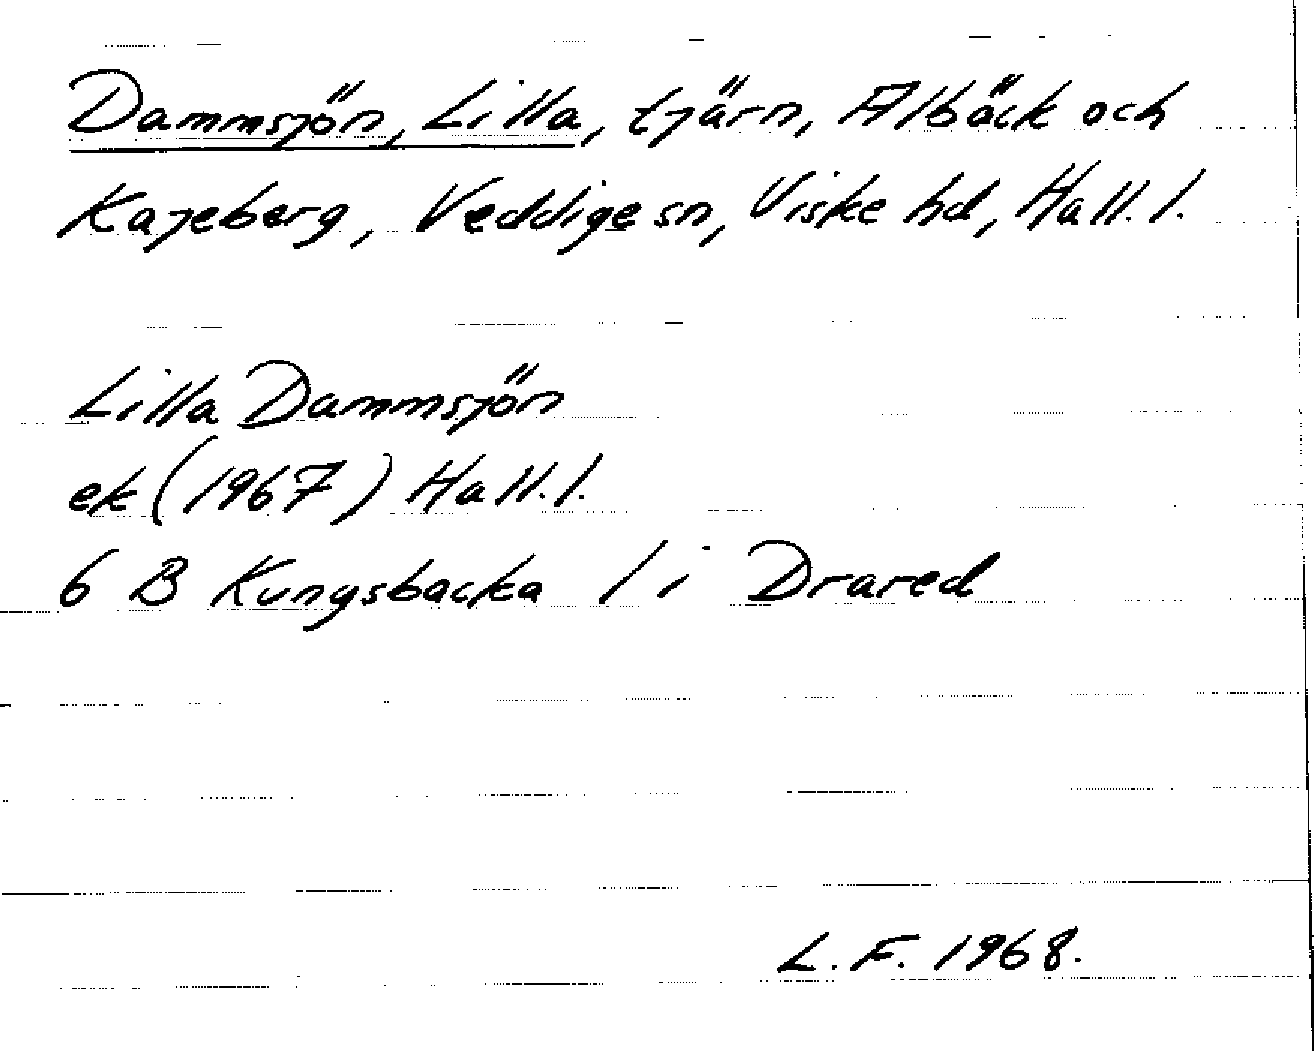 Dammsjön, Lilla, tjärn, Albäck och
Kajeberg, Veddige sn, Viske hd, Hall. l.
Lilla Dammsjön
ek (1967) Hall. l.
6 B Kungsbacka 1 i Drared
L. F. 1968.